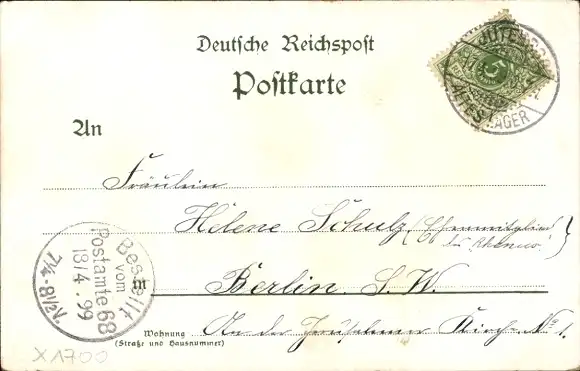 Deutsche Reichspost
Postkarte
JÜTERBOG
5
ALTES LAGER
An
Fräulein
Helene Schulz
in
Berlin S. W.
Wohnung
(Straße und Hausnummer)
An der Jerusalemer Kirche No 1.
Bestellt
vom
Postamte 68
13/4. 99
7¼-8½N.
X1700